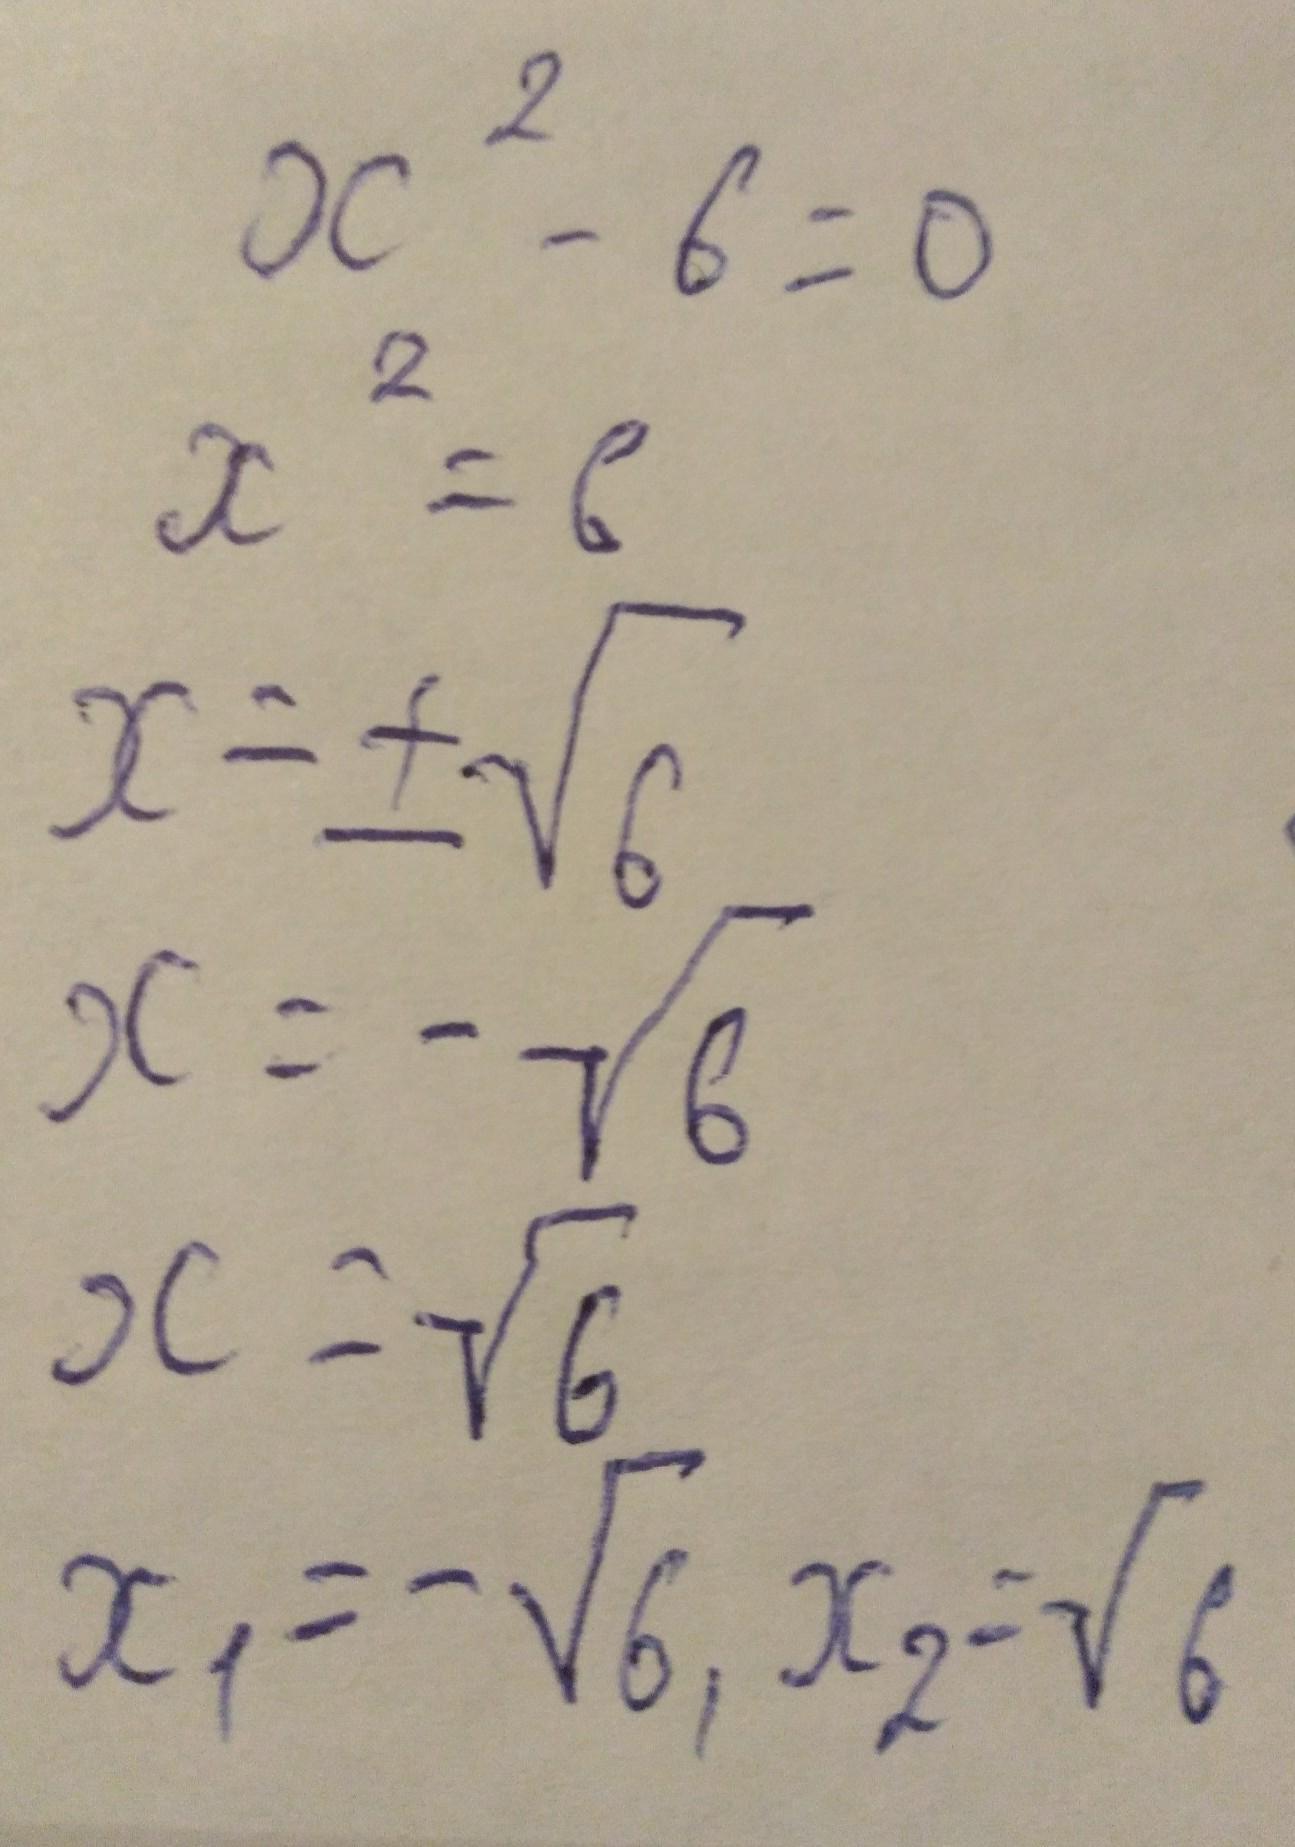 x² - 6 = 0
x² = 6
x = ±√6
x = -√6
x = √6
x₁ = -√6, x₂ = √6